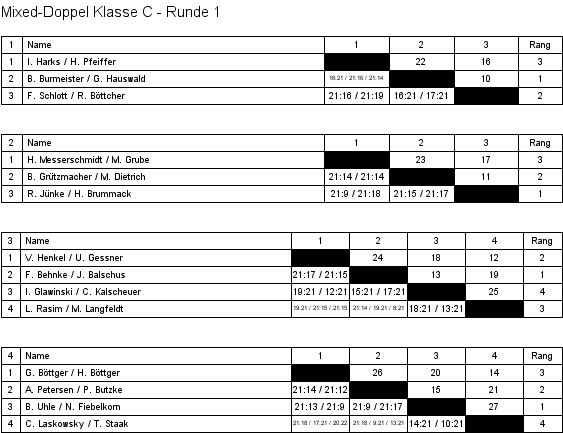 Mixed-Doppel Klasse C - Runde 1
1 Name 1 2 3 Rang
1 I. Harks / H. Pfeiffer 22 16 3
2 B. Burmeister / G. Hauswald 16:21 / 21:16 / 21:14 10 1
3 F. Schlott / R. Böttcher 21:16 / 21:19 16:21 / 17:21 2
2 Name 1 2 3 Rang
1 H. Messerschmidt / M. Grube 23 17 3
2 B. Grützmacher / M. Dietrich 21:14 / 21:14 11 2
3 R. Jünke / H. Brummack 21:9 / 21:18 21:15 / 21:17 1
3 Name 1 2 3 4 Rang
1 V. Henkel / U. Gessner 24 18 12 2
2 F. Behnke / J. Balschus 21:17 / 21:15 13 19 1
3 I. Glawinski / C. Kalscheuer 19:21 / 12:21 15:21 / 17:21 25 4
4 L. Rasim / M. Langfeldt 19:21 / 21:15 / 21:15 21:14 / 19:21 / 8:21 18:21 / 13:21 3
4 Name 1 2 3 4 Rang
1 G. Böttger / H. Böttger 26 20 14 3
2 A. Petersen / P. Butzke 21:14 / 21:12 15 21 2
3 B. Uhle / N. Fiebelkorn 21:13 / 21:9 21:9 / 21:17 27 1
4 C. Laskowsky / T. Staak 21:18 / 17:21 / 20:22 21:18 / 9:21 / 13:21 14:21 / 10:21 4